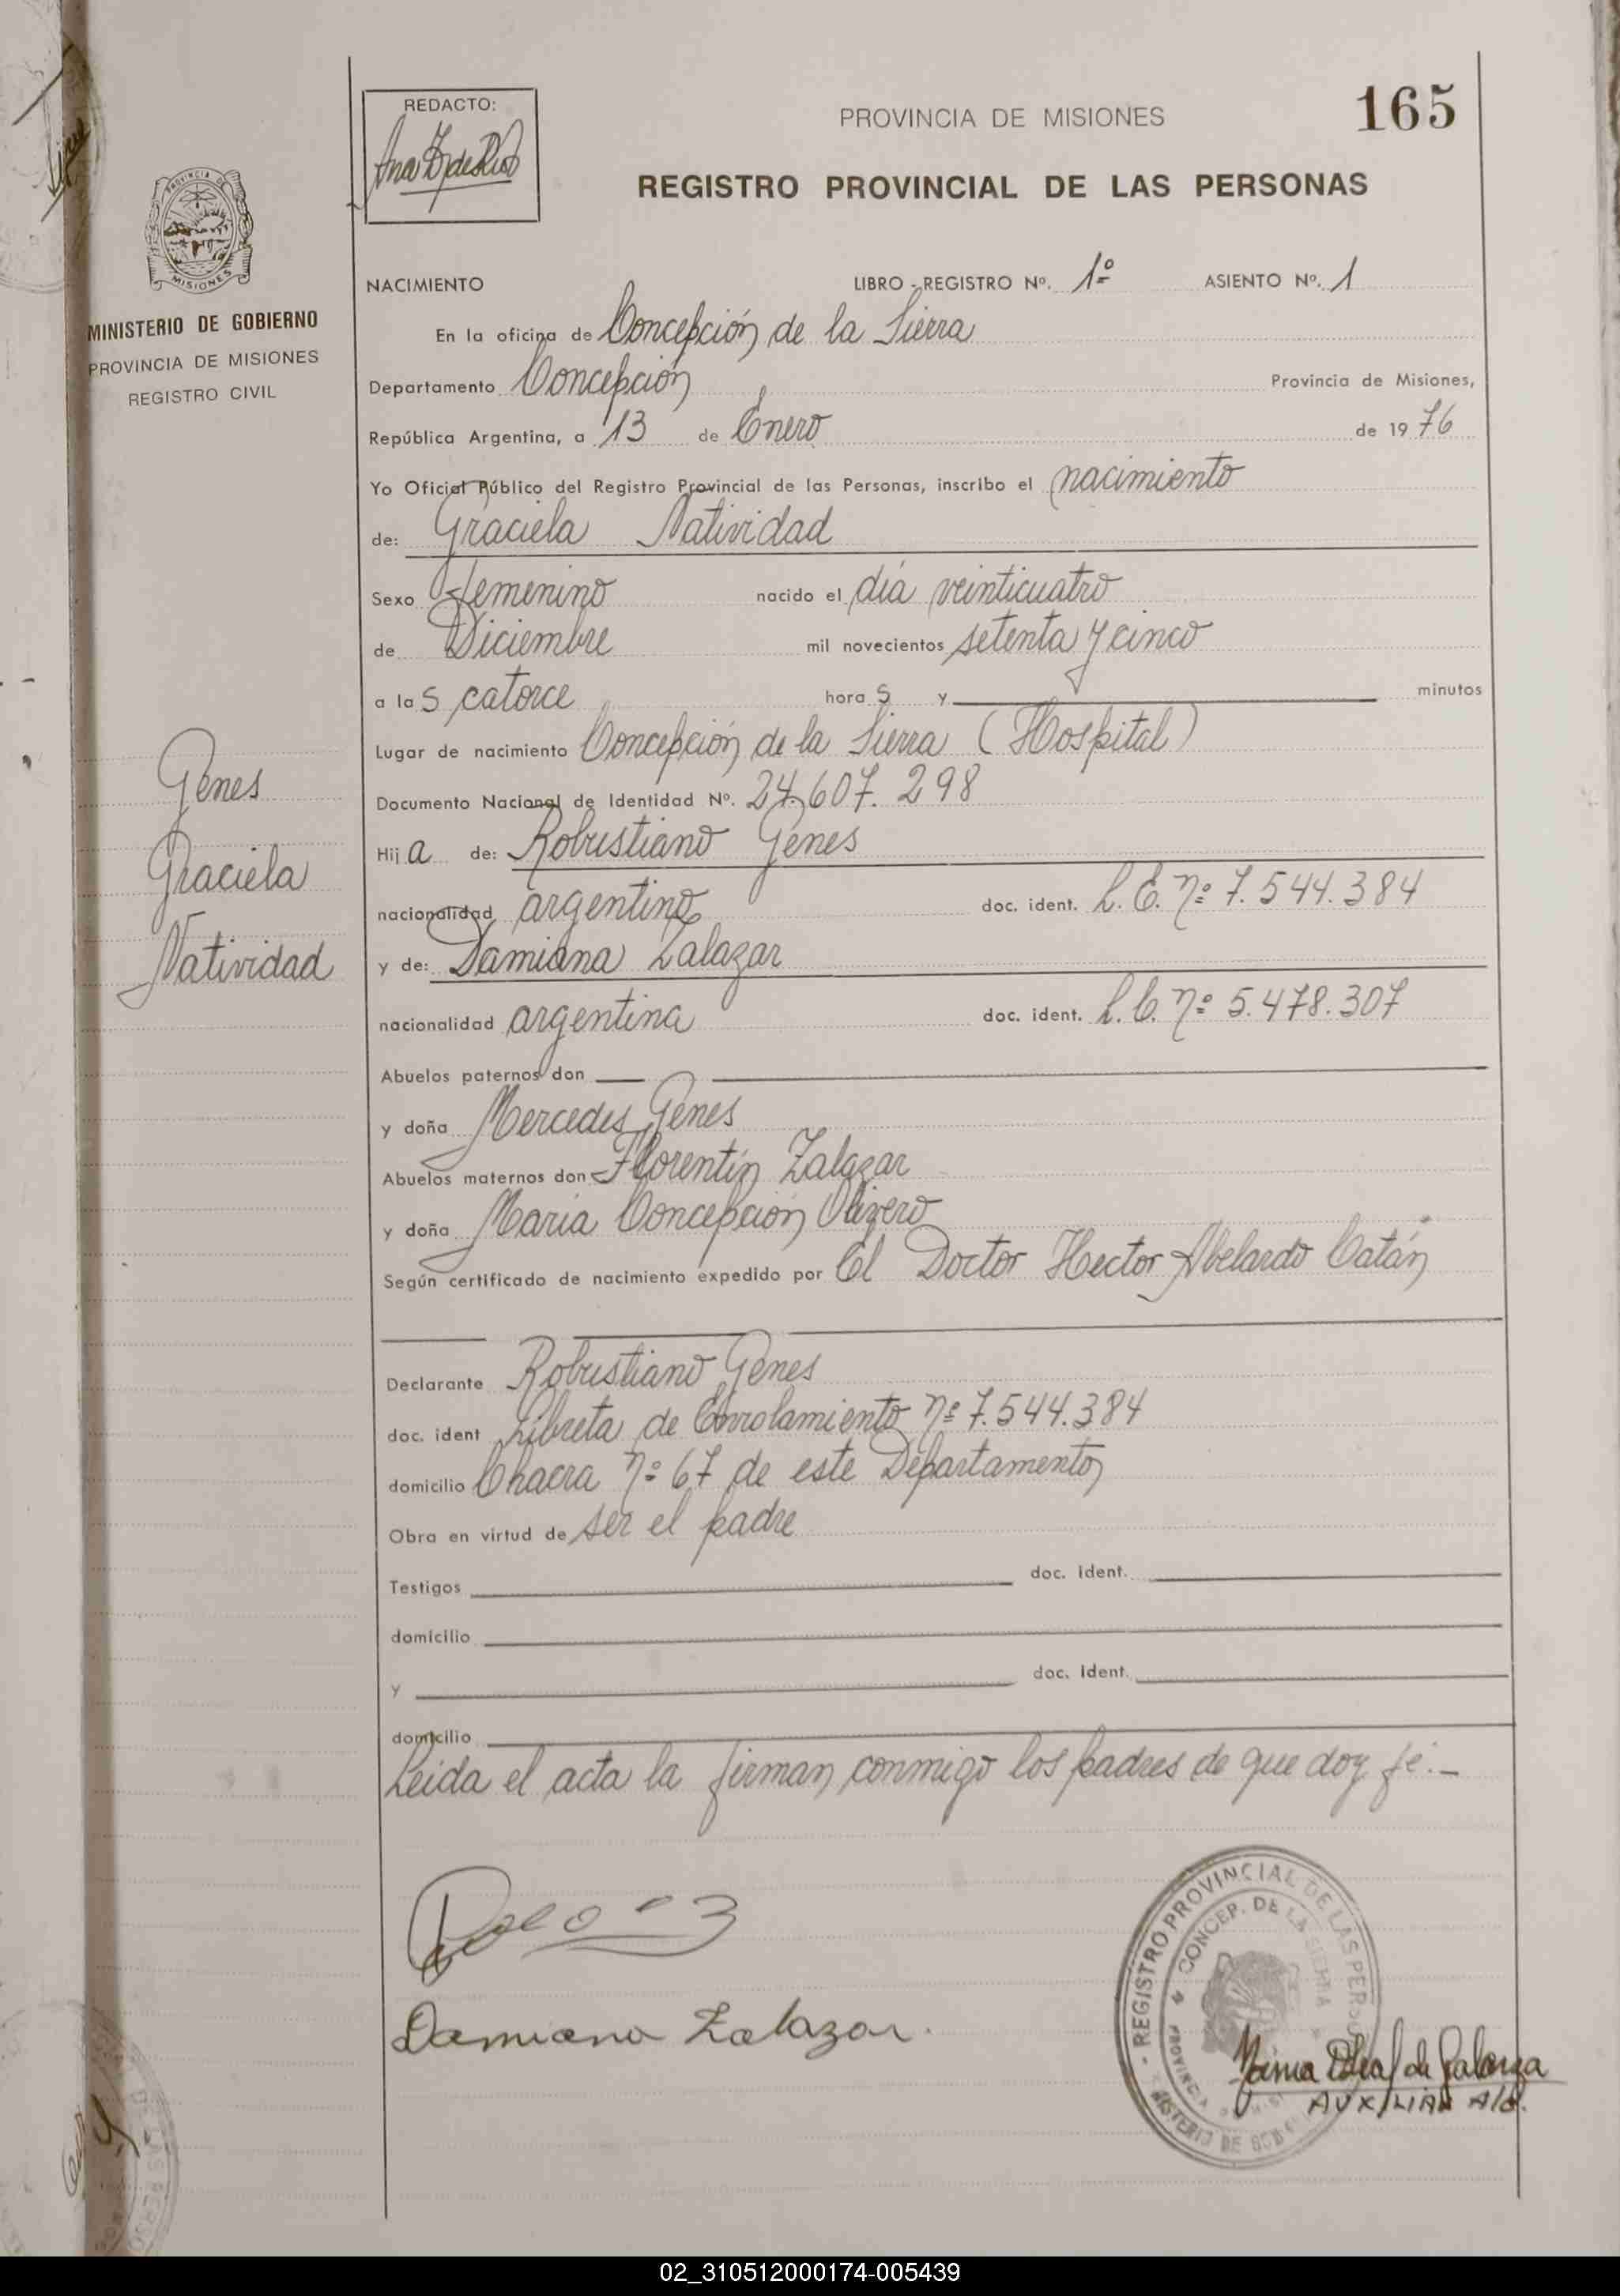 REDACTO:
PROVINCIA DE MISIONES
165
REGISTRO PROVINCIAL DE LAS PERSONAS
PROVINCIA DE
MISIONES
MINISTERIO DE GOBIERNO
PROVINCIA DE MISIONES
REGISTRO CIVIL
Genes
Graciela
Natividad
NACIMIENTO LIBRO - REGISTRO Nº. 1º ASIENTO Nº. 1
En la oficina de Concepción de la Sierra
Departamento Concepción Provincia de Misiones,
República Argentina, a 13 de Enero de 1976
Yo Oficial Público del Registro Provincial de las Personas, inscribo el nacimiento
de: Graciela Natividad
Sexo femenino nacido el día veinticuatro
de Diciembre mil novecientos setenta y cinco
a las catorce horas y minutos
Lugar de nacimiento Concepción de la Sierra (Hospital)
Documento Nacional de Identidad Nº. 24.607.298
Hija de: Robustiano Genes
nacionalidad argentino doc. ident. L.E. nº 7.544.384
y de: Damiana Zalazar
nacionalidad argentina doc. ident. L.C. nº 5.478.307
Abuelos paternos don
y doña Mercedes Genes
Abuelos maternos don Florentín Zalazar
y doña María Concepción Olivero
Según certificado de nacimiento expedido por El Doctor Hector Abelardo Catán
Declarante Robustiano Genes
doc. ident Libreta de Enrolamiento nº 7.544.384
domicilio Chacra nº 67 de este Departamento
Obra en virtud de ser el padre
Testigos doc. ident.
domicilio
y doc. ident.
domicilio
Leida el acta la firman conmigo los padres de que doy fé.-
Damiana Zalazar.
REGISTRO PROVINCIAL DE LAS PERSO
CONCEP. DE LA SIERRA
PROVINCIA
AUXILIAR
02_310512000174-005439